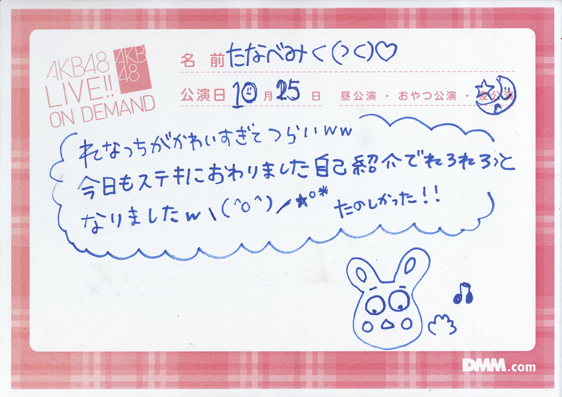 AKB48
LIVE!!
ON DEMAND
AKB
48
名 前 たなべみく(>く)♡
公演日 10月 25 日 昼公演・おやつ公演・夜公演
れなっちがかわいすぎてつらいww
今日もステキにおわりました自己紹介でれろれろっと
なりましたw \(^o^)/★°* たのしかった!!
DMM.com